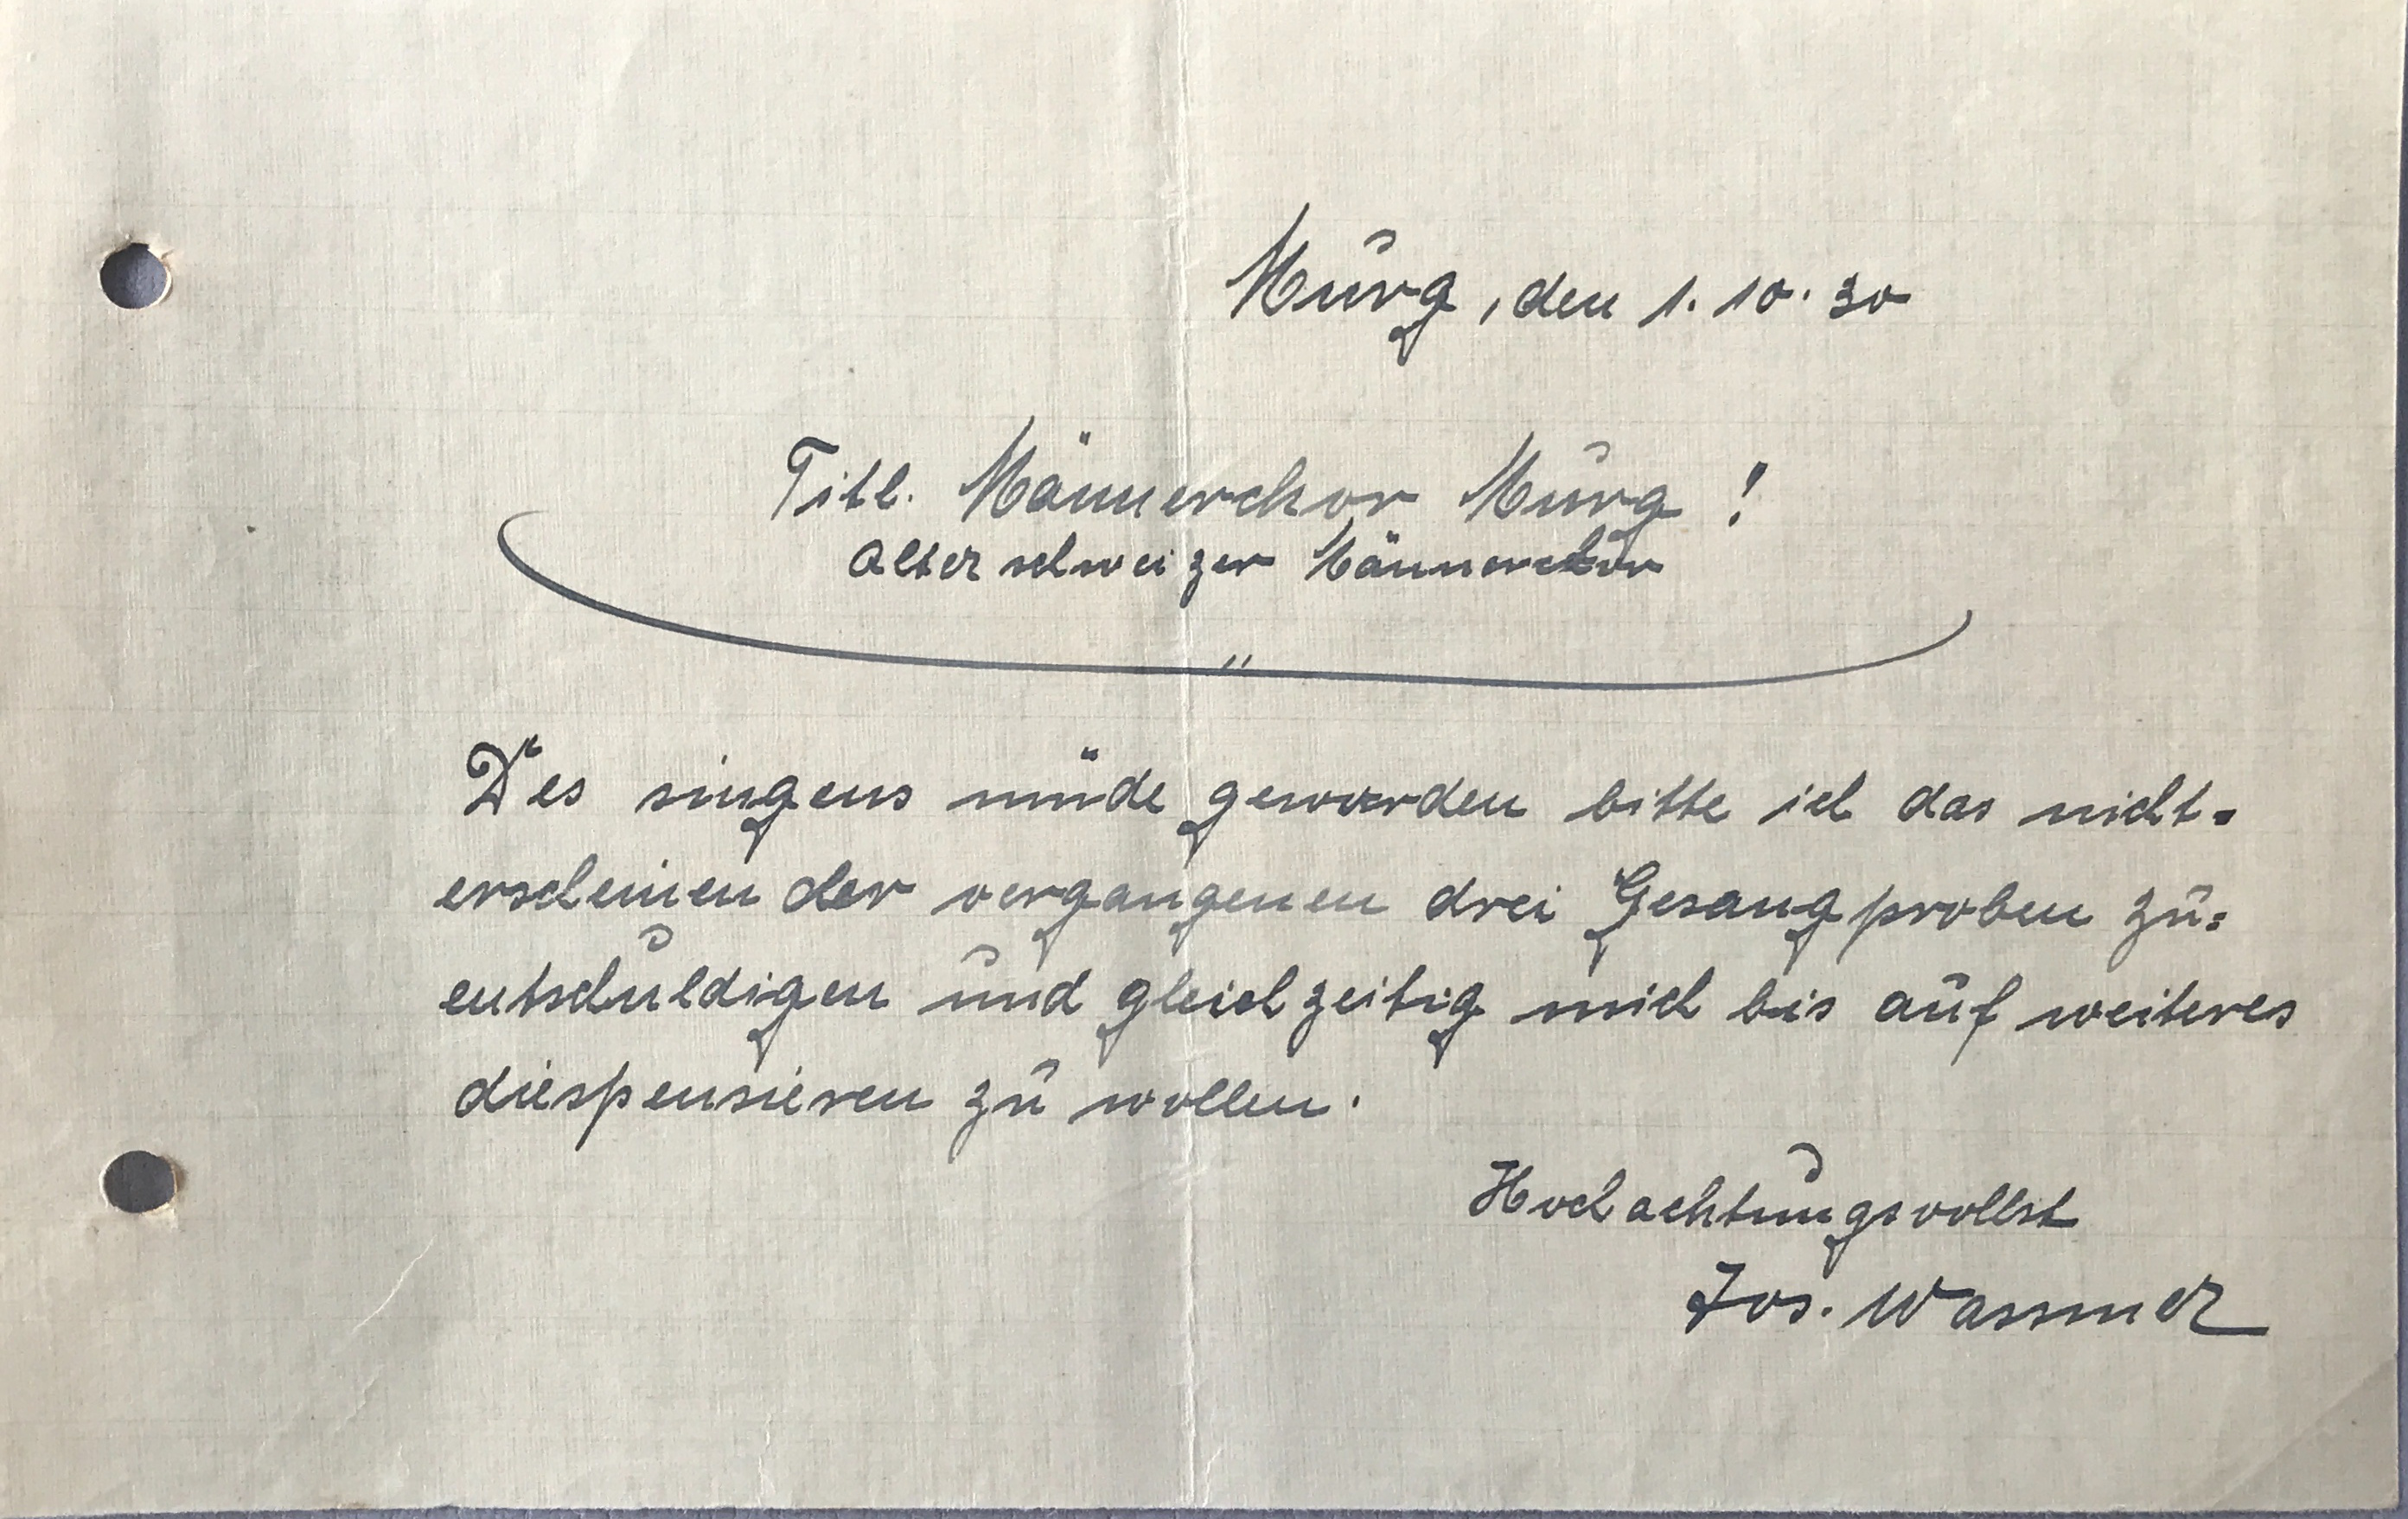 Murg, den 1. 10. 30
Titl. Männerchor Murg!
Alter schweizer Männerchor
"
Des singens müde geworden bitte ich das nicht-
erscheinen der vergangenen drei Gesangproben zu-
entschuldigen und gleichzeitig mich bis auf weiteres
diespensieren zu wollen.
Hochachtungsvollst
Jos. Wassmer